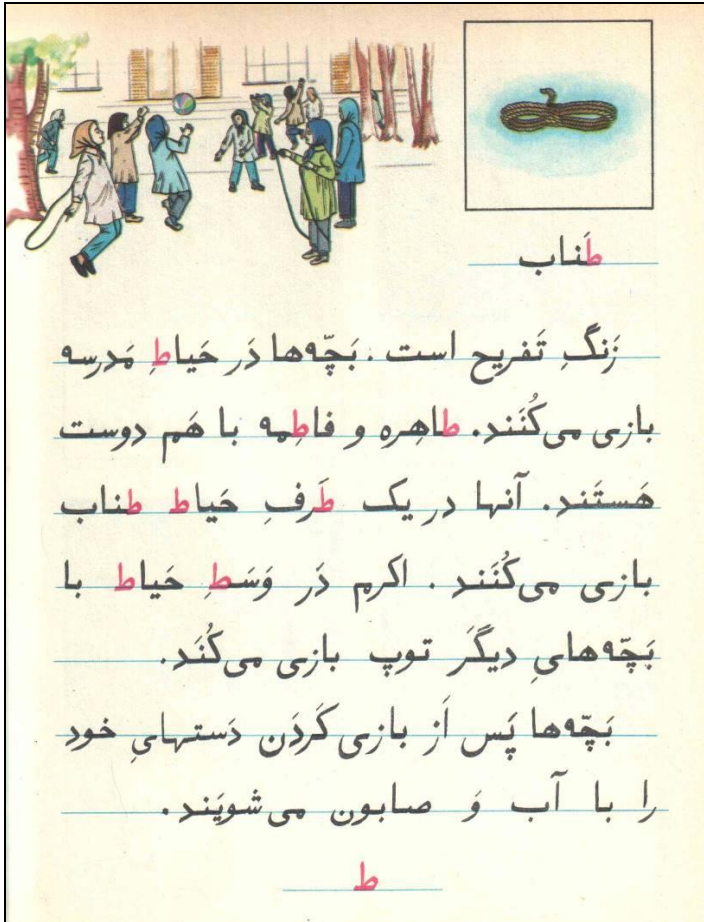 طَناب
زَنگِ تَفریح است. بَچّه‌ها دَر حَیاطِ مَدرسه
بازی می‌کُنَند. طاهِره و فاطِمه با هَم دوست
هَستَند. آنها در یک طَرفِ حَیاط طناب
بازی می‌کُنَند. اکرم دَر وَسَطِ حَیاط با
بَچّه‌هایِ دیگَر توپ بازی می‌کُنَد.
بَچّه‌ها پَس اَز بازی کَردَن دَستهایِ خود
را با آب وَ صابون می‌شویَند.
ط